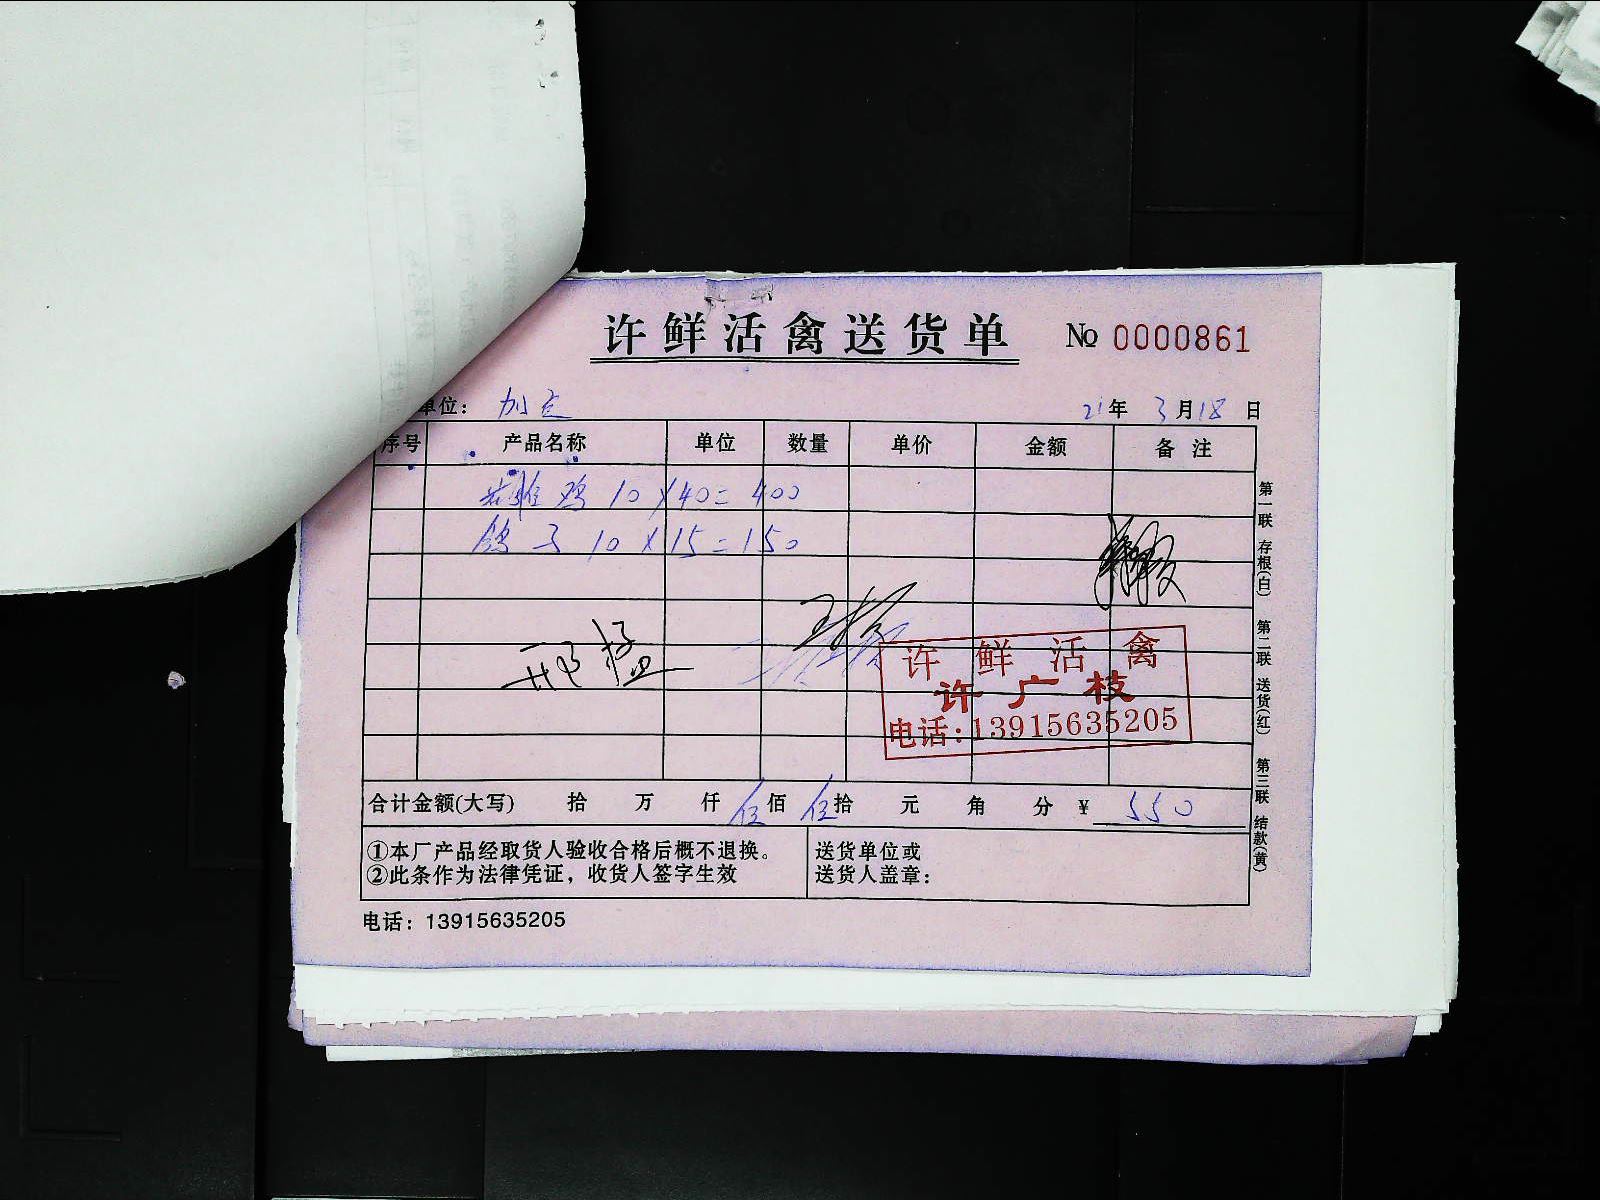 许鲜活禽送货单 № 0000861
单位: 21年 3月18日
序号 产品名称 单位 数量 单价 金额 备注
鸡 10×40=400
鸽子 10×15=150
许鲜活禽
许广枝
电话:13915635205
合计金额(大写) 拾 万 仟 伍佰 伍拾 元 角 分 ¥ 550
①本厂产品经取货人验收合格后概不退换。
②此条作为法律凭证，收货人签字生效
送货单位或
送货人盖章:
电话: 13915635205
第一联 存根(白)
第二联 送货(红)
第三联 结款(黄)